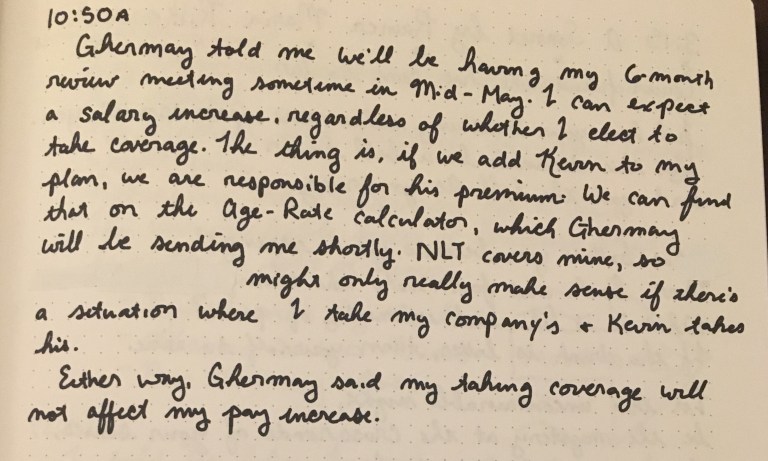 10:50A
Ghermay told me we'll be having my 6-month
review meeting sometime in Mid-May. I can expect
a salary increase, regardless of whether I elect to
take coverage. The thing is, if we add Kevin to my
plan, we are responsible for his premium. We can find
that on the Age-Rate calculator, which Ghermay
will be sending me shortly. NLT covers mine, so
might only really make sense if there's
a situation where I take my company's & Kevin takes
his.
Either way, Ghermay said my taking coverage will
not affect my pay increase.